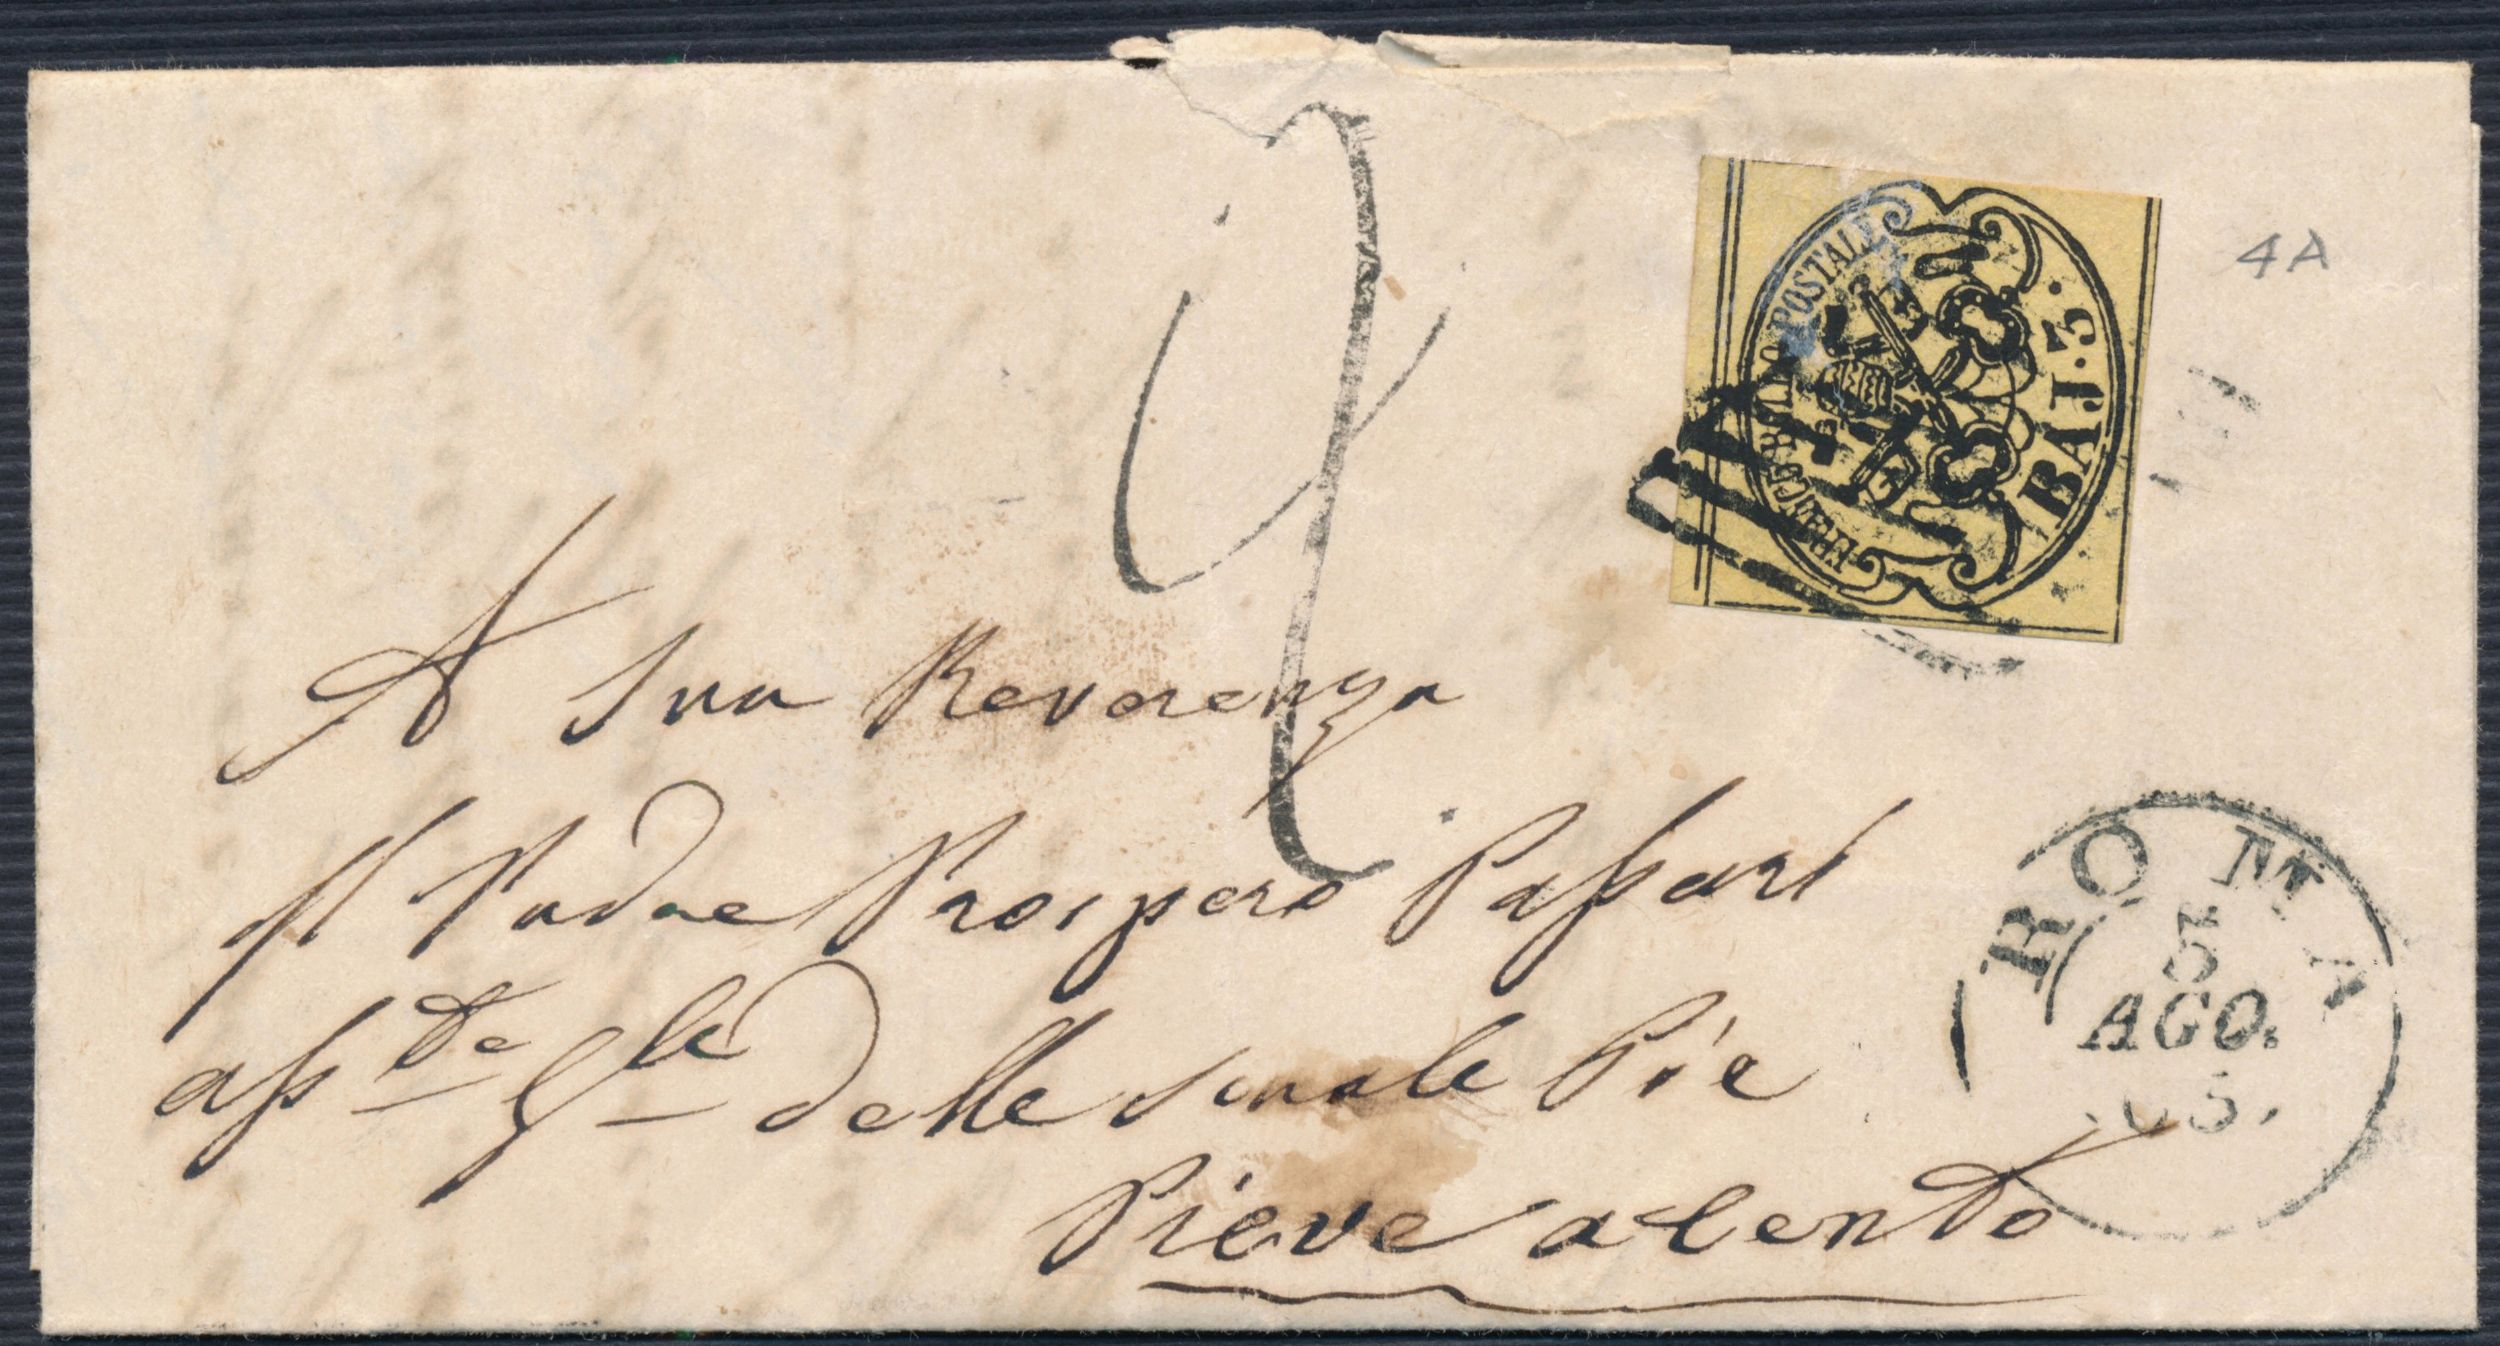 4A
FRANCO BOLLO POSTALE
BAJ. 3.
A Sua Reverenza
Il Padre Prospero Paſsari
aſsde Gle delle Scuole Pie
Pieve a Cento
ROMA
5
AGO.